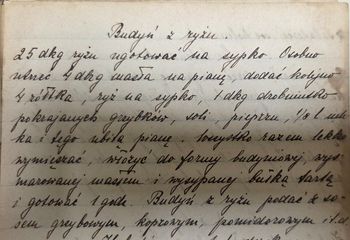 Budyń z ryżu.
25 dkg ryżu ugotować na sypko. Osobno
utrzeć 4 dkg masła na pianę, dodać kolejno
4 żółtka, ryż na sypko, 1 dkg drobniutko
pokrajanych grzybków, soli, pieprzu, 1/8 l mle
ka i tego ubita pianę. Wszystko razem lekko
wymieszać, włożyć do formy budyniowej, wys
marowanej masłem i wysypanej bułką tartą
i gotować 1 godz. Budyń z ryżu podać z so
sem grzybowym, koprowym, pomidorowym i t.d.